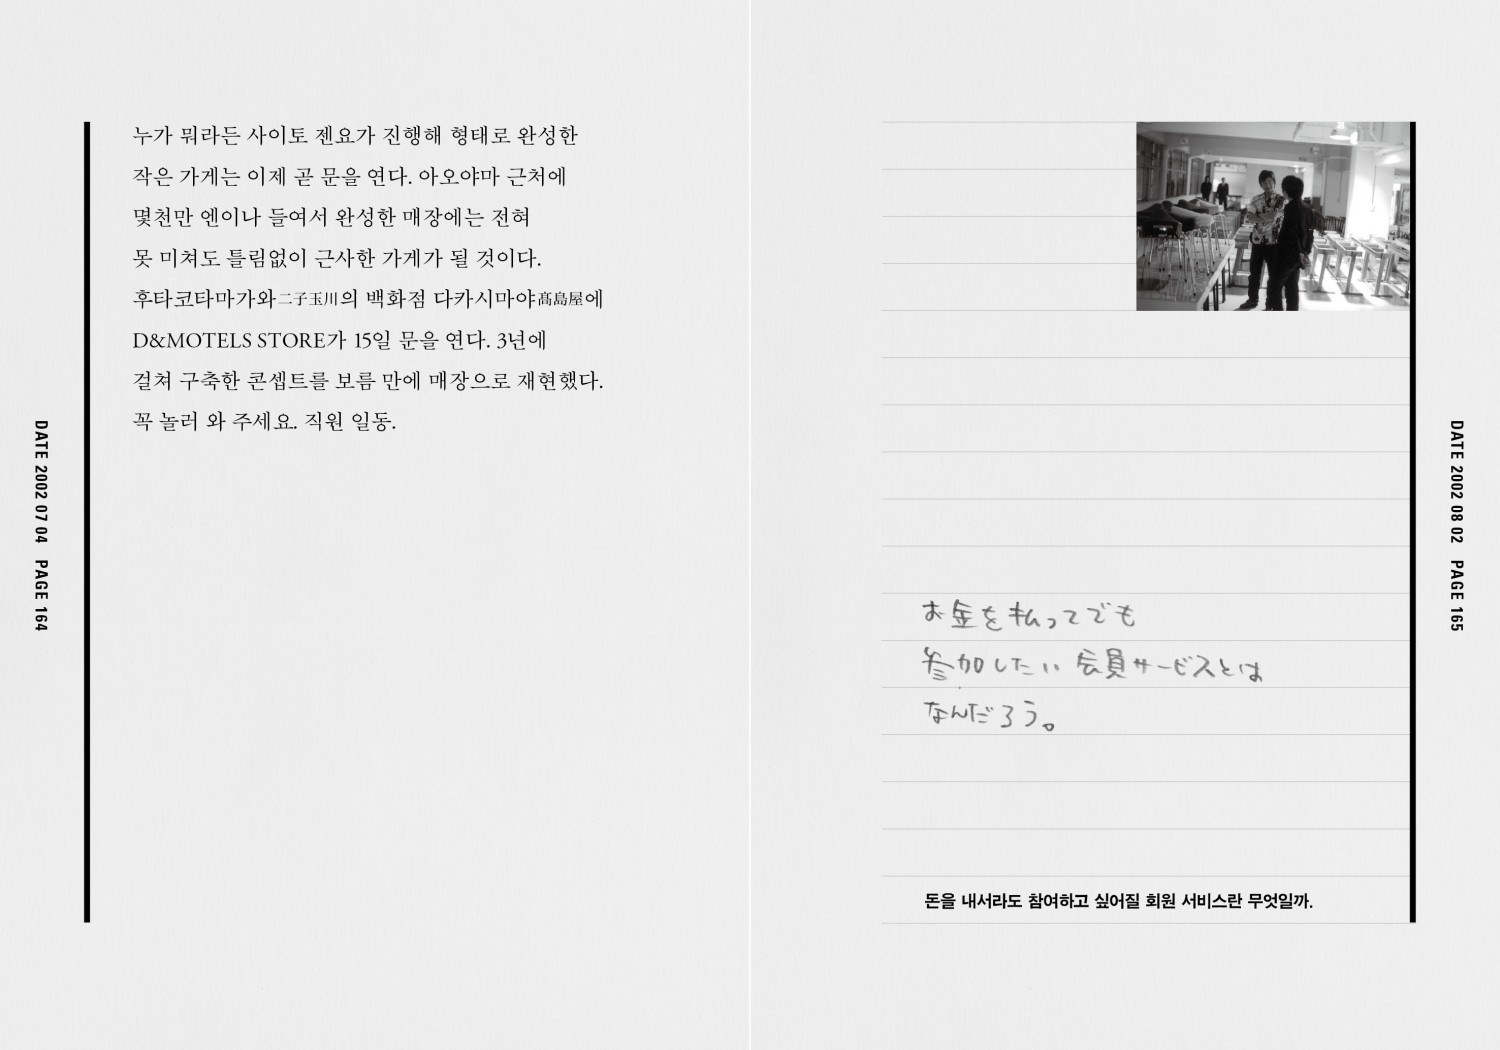 누가 뭐라든 사이토 젠요가 진행해 형태로 완성한
작은 가게는 이제 곧 문을 연다. 아오야마 근처에
몇천만 엔이나 들여서 완성한 매장에는 전혀
못 미쳐도 틀림없이 근사한 가게가 될 것이다.
후타코타마가와二子玉川의 백화점 다카시마야髙島屋에
D&MOTELS STORE가 15일 문을 연다. 3년에
걸쳐 구축한 콘셉트를 보름 만에 매장으로 재현했다.
꼭 놀러 와 주세요. 직원 일동.
DATE 2002 07 04 PAGE 164
お金を払ってでも
参加したい会員サービスとは
なんだろう。
돈을 내서라도 참여하고 싶어질 회원 서비스란 무엇일까.
DATE 2002 08 02 PAGE 165